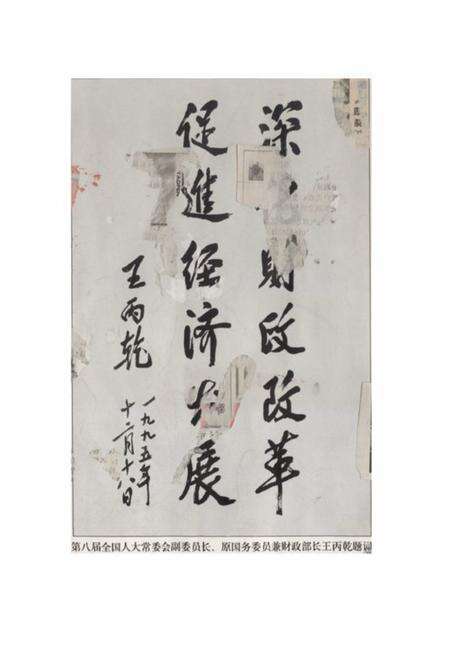 深财政改革
促進经济发展
王丙乾
一九九五年
十二月十八日
第八届全国人大常委会副委员长、原国务委员兼财政部长王丙乾题词